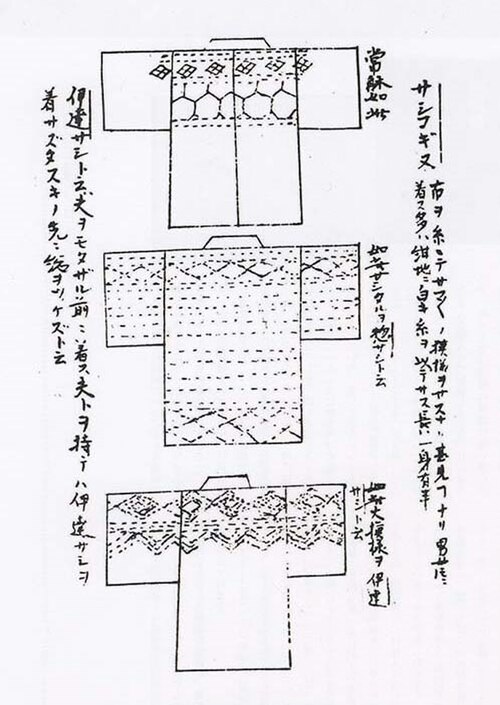 サシコギヌ
布ヲ糸ニテサマ〲ノ模様ヲサスナリ甚見コトナリ男女共ニ
着ス多ハ紺地ニ白キ糸ヲ以テサス長ハ一身有半
常躰如此
如此サシタルヲ惣サシト云
如此大模様ヲ伊達
サシト云
伊達サシト云夫ヲモタザル前ニ着ス夫トヲ持テハ伊達サシヲ
着サズタスキノ先ニ総ヲツケズト云